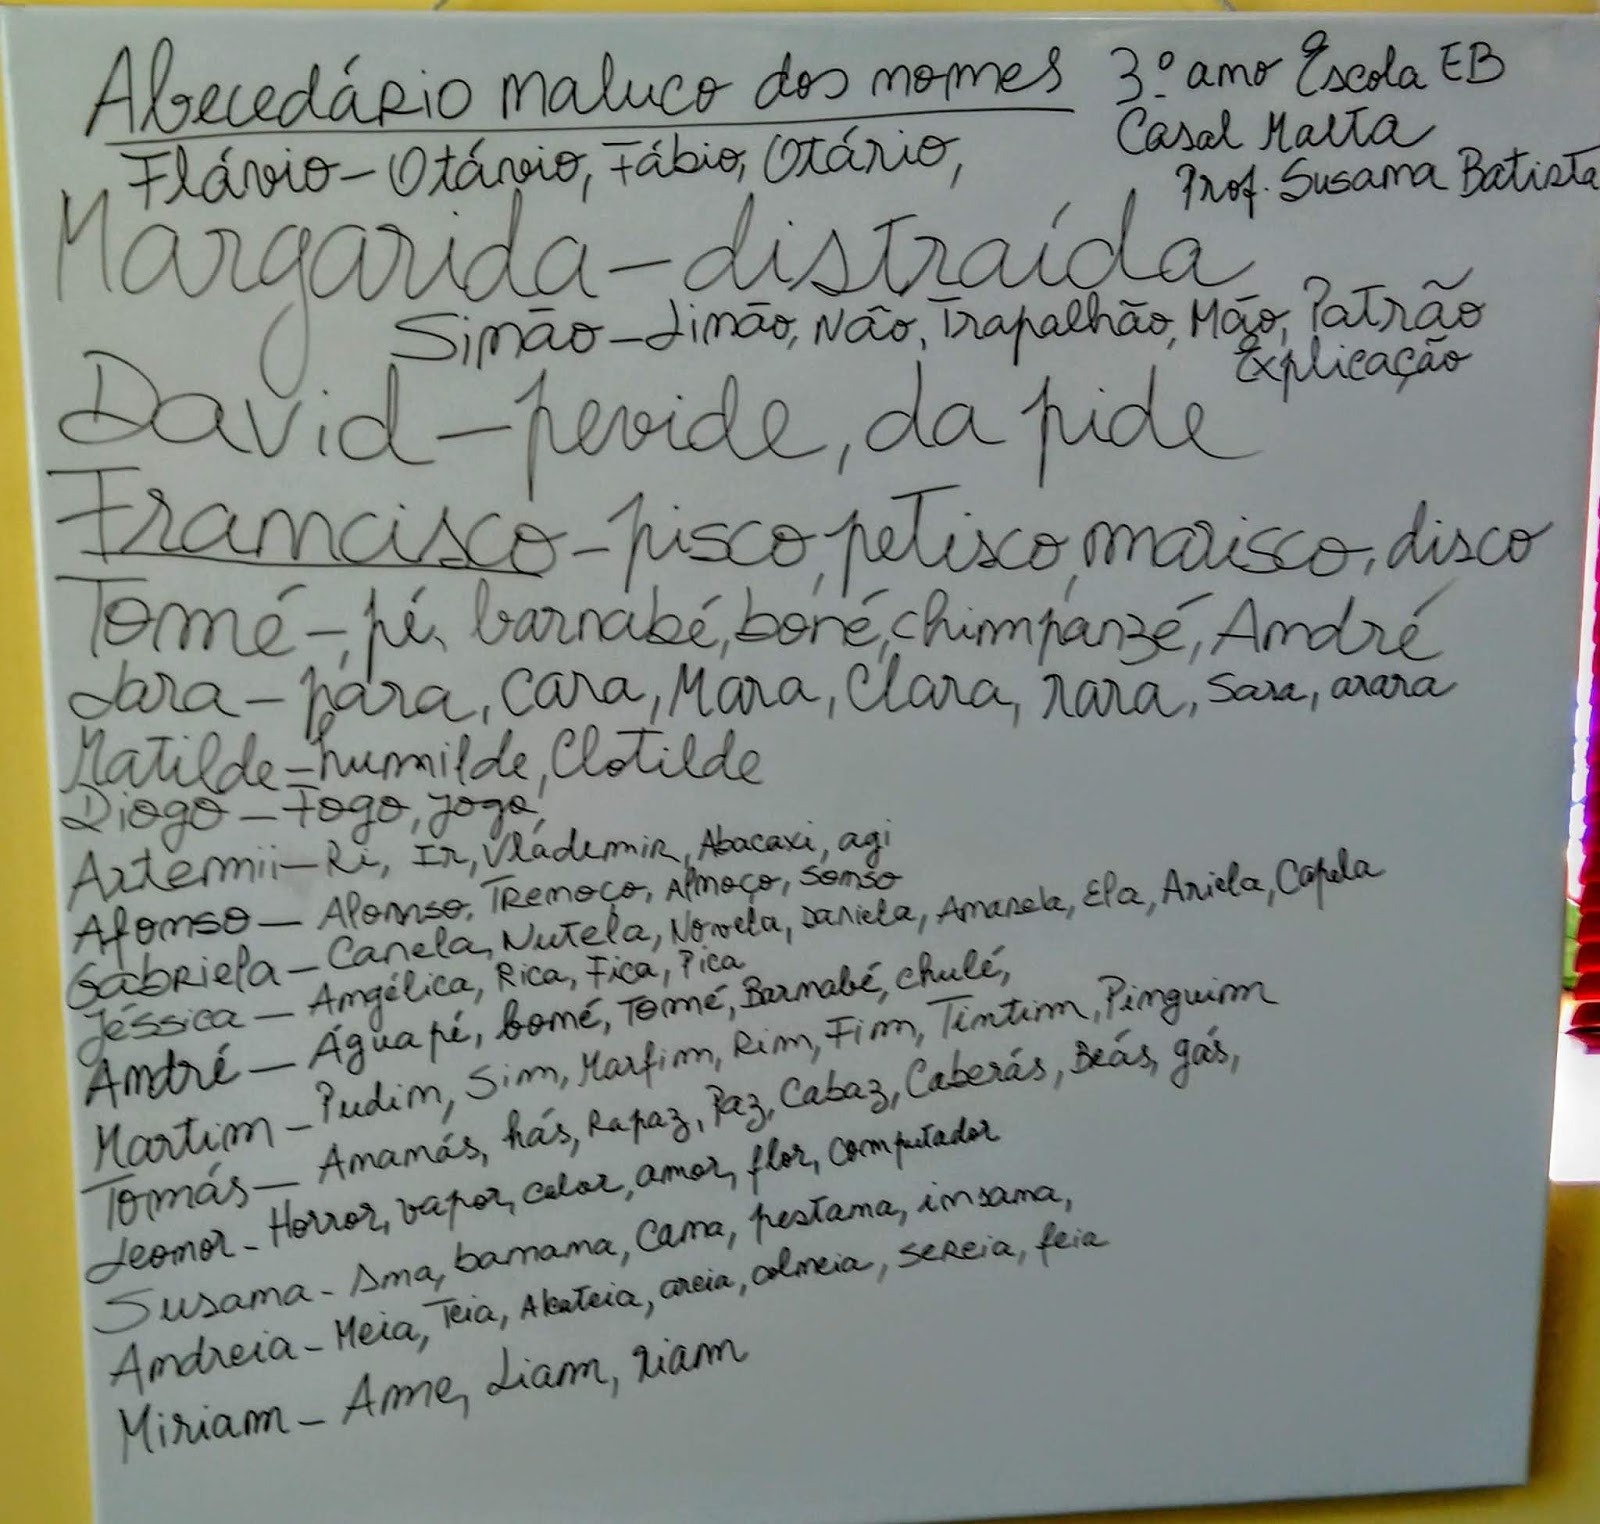 Abecedário maluco dos nomes
3.º ano Escola EB
Casal Malta
Prof. Susana Batista
Flávio - Otávio, Fábio, Otário,
Margarida - distraída
Simão - Limão, Não, Trapalhão, Mão, Patrão
Explicação
David - pevide, da pide
Francisco - pisco, petisco, marisco, disco
Tomé - pé, barnabé, boné, chimpanzé, André
Lara - pára, Cara, Mara, Clara, rara, Sara, arara
Matilde - humilde, Clotilde
Diogo - Fogo, jogo,
Artemii - Ri, Ir, Vládemir, Abacaxi, agi
Afonso - Alonso, Tremoço, Almoço, Sonso
Gabriela - Canela, Nutela, Novela, Daniela, Amarela, Ela, Ariela, Capela
Jéssica - Angélica, Rica, Fica, Pica
André - Água pé, boné, Tomé, Barnabé, chulé,
Martim - Pudim, Sim, Marfim, Rim, Fim, Tintim, Pinguim
Tomás - Ananás, hás, Rapaz, Paz, Cabaz, Caberás, Beás, gás,
Leonor - Horror, vapor, calor, amor, flor, computador
Susana - Ana, banana, Cana, pestana, insana,
Andreia - Meia, Teia, Alcateia, areia, colmeia, sereia, feia
Miriam - Anne, Liam, riam